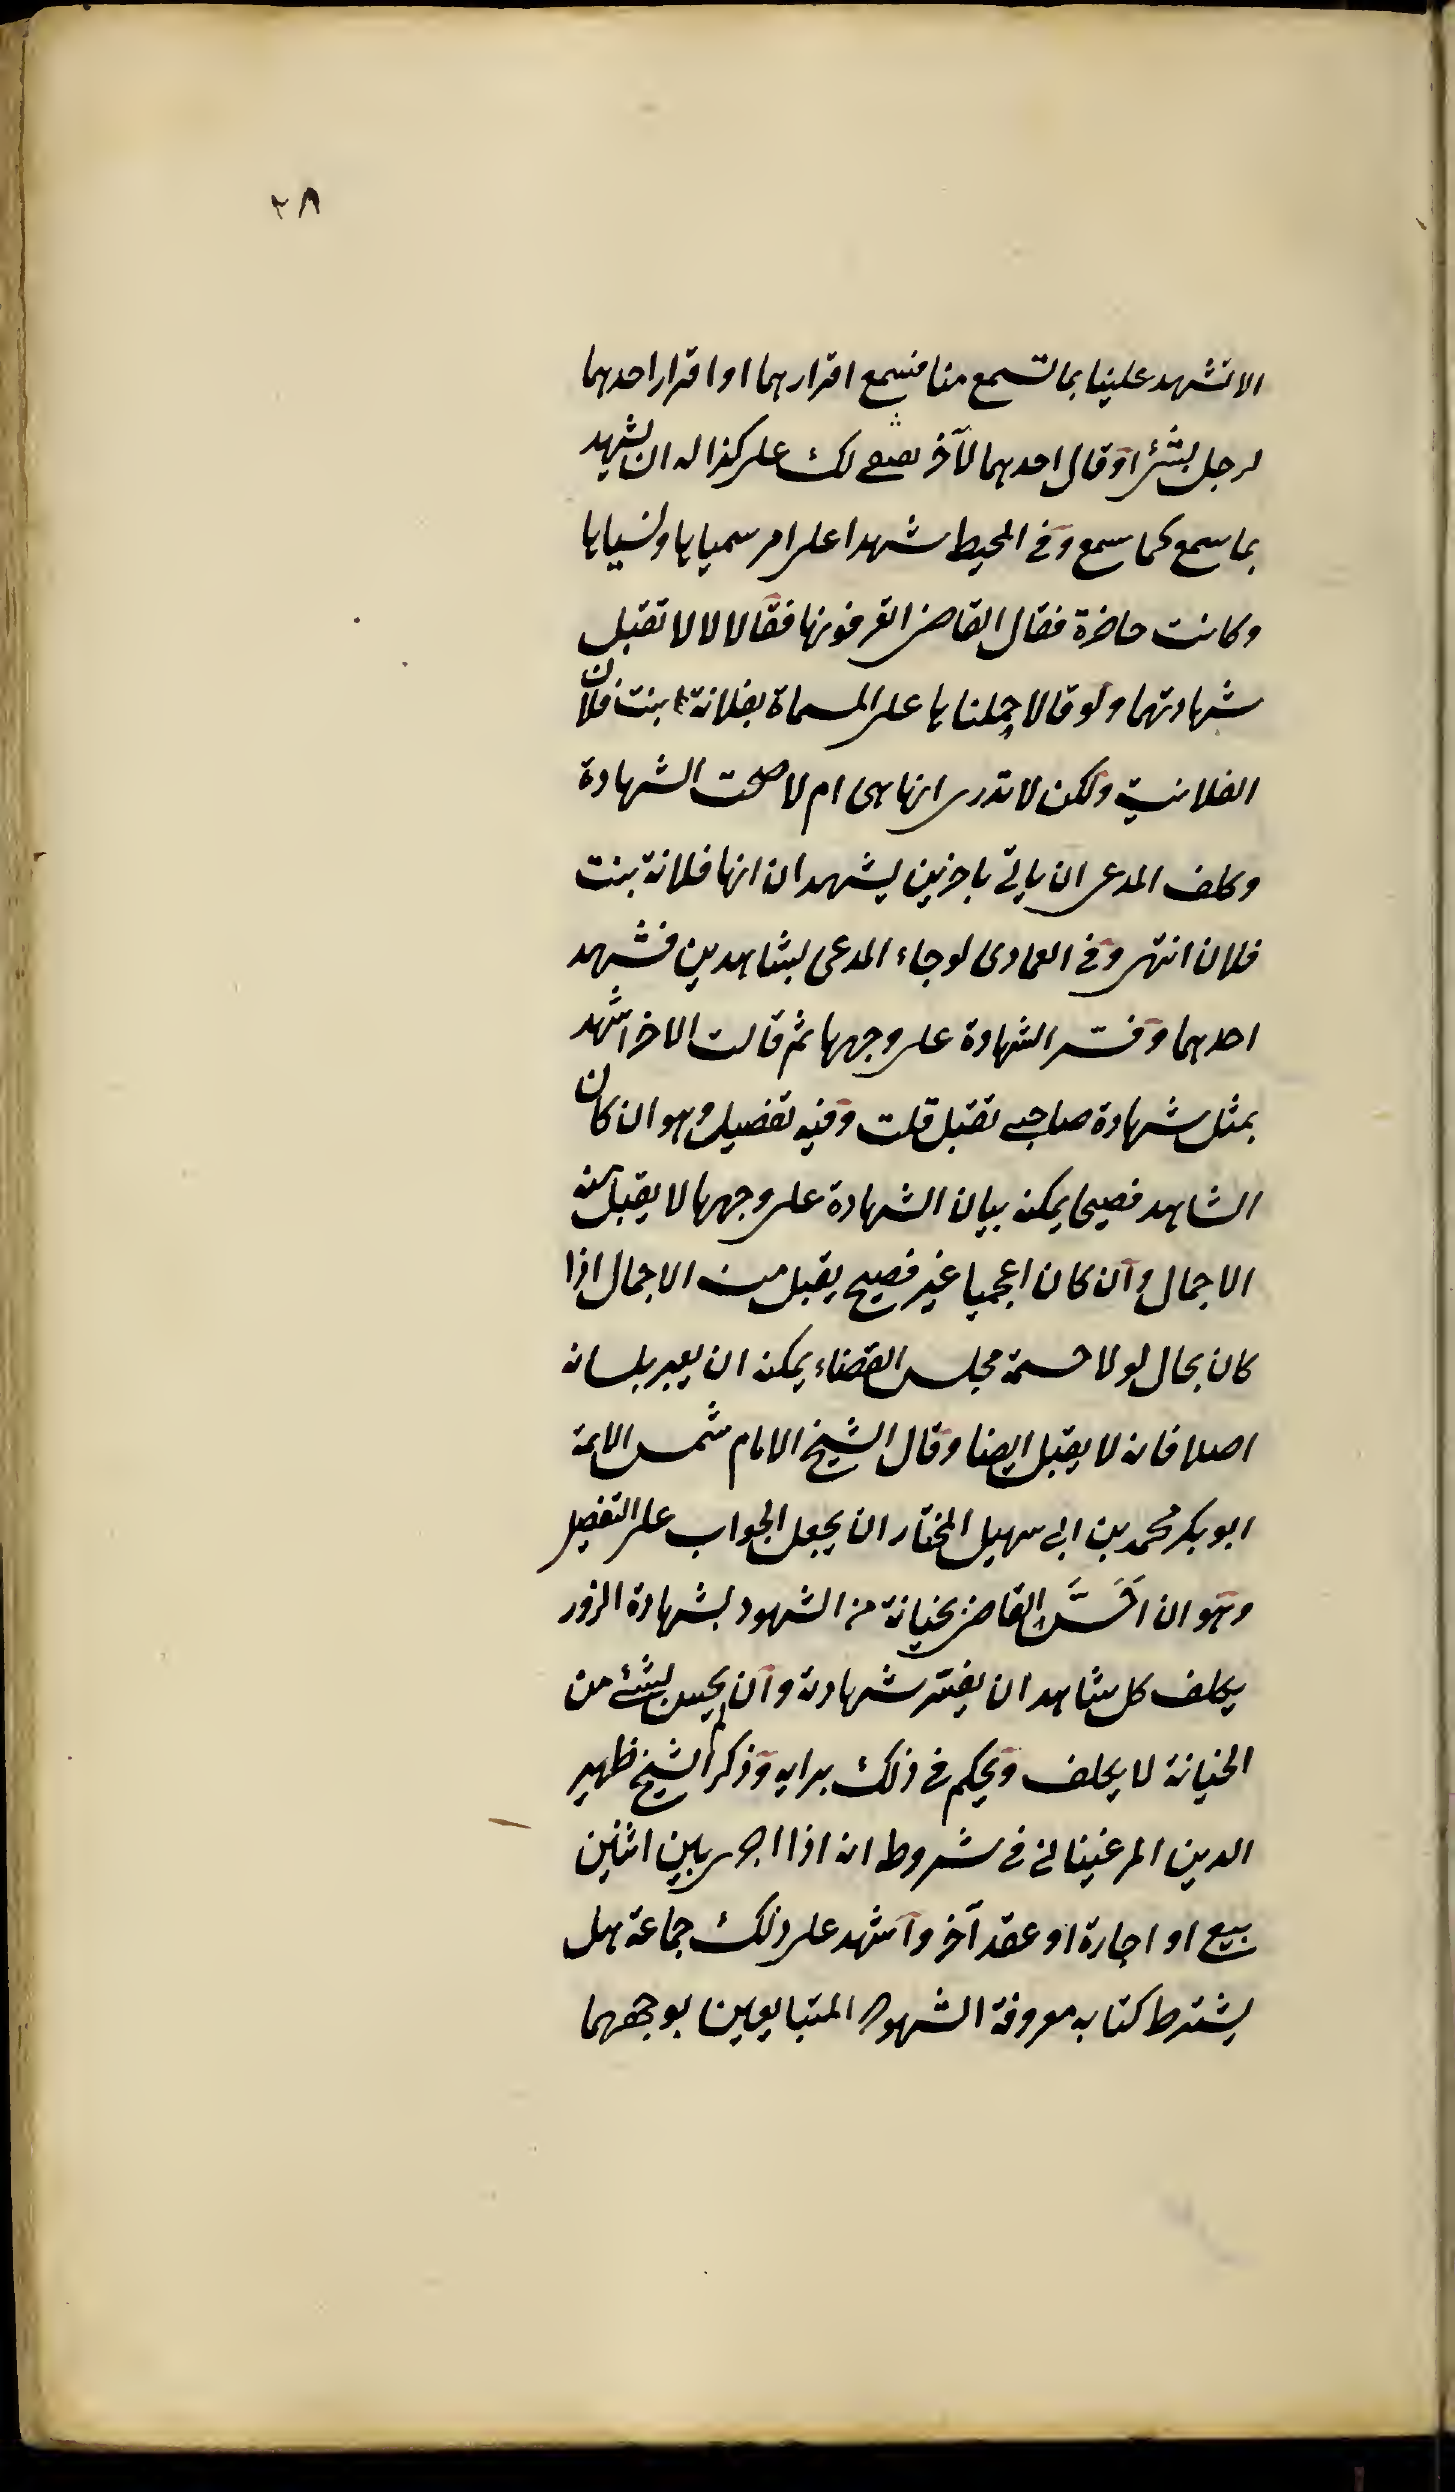 ٢٨
الا تشهد علينا بما تسمع منا فسمع اقرارهما او اقرار احدهما
لرجل بشئ او قال احدهما للآخر بقى لك على كذا له ان يشهد
بما سمع كما سمع وفى المحيط شهدا على امراة سمياها ونسباها
وكانت حاضرة فقال القاضى اتعرفونها فقالا لا لا تقبل
شهادتهما ولو قالا حملناها على المسماة بفلانة بنت فلان
الفلانية ولكن لا ندرى انها هى ام لا صحت الشهادة
وكلف المدعى ان ياتى باخرين يشهدان انها فلانة بنت
فلان انتهى وفى العمادى لو جاء المدعى بشاهدين فشهد
احدهما وفسر الشهادة على وجهها ثم قالت الاخر اشهد
بمثل شهادة صاحبى تقبل قلت وفيه تفصيل وهو ان كان
الشاهد فصيحا يمكنه بيان الشهادة على وجهها لا يقبل منه
الاجمال وان كان اعجميا غير فصيح يقبل منه الاجمال اذا
كان بحال لولا حشمة مجلس القضاء يمكنه ان يعبر بلسانه
اصلا فانه لا يقبل ايضا وقال الشيخ الامام شمس الائمة
ابو بكر محمد بن ابى سهيل المختار ان يجعل الجواب على التفصيل
وهو ان احَسَّ القاضى بخيانة من الشهود بشهادة الزور
يكلف كل شاهد ان يفسر شهادته وان لم يحس بشئ من
الخيانة لا يكلف ويحكم فى ذلك برايه وذكر الشيخ ظهير
الدين المرغينانى فى شروطه انه اذا اجرى بين اثنين
بيع او اجارة او عقد آخر واشهد على ذلك جماعة هل
يشترط كتابه معرفة الشهود المتبايعين بوجههما